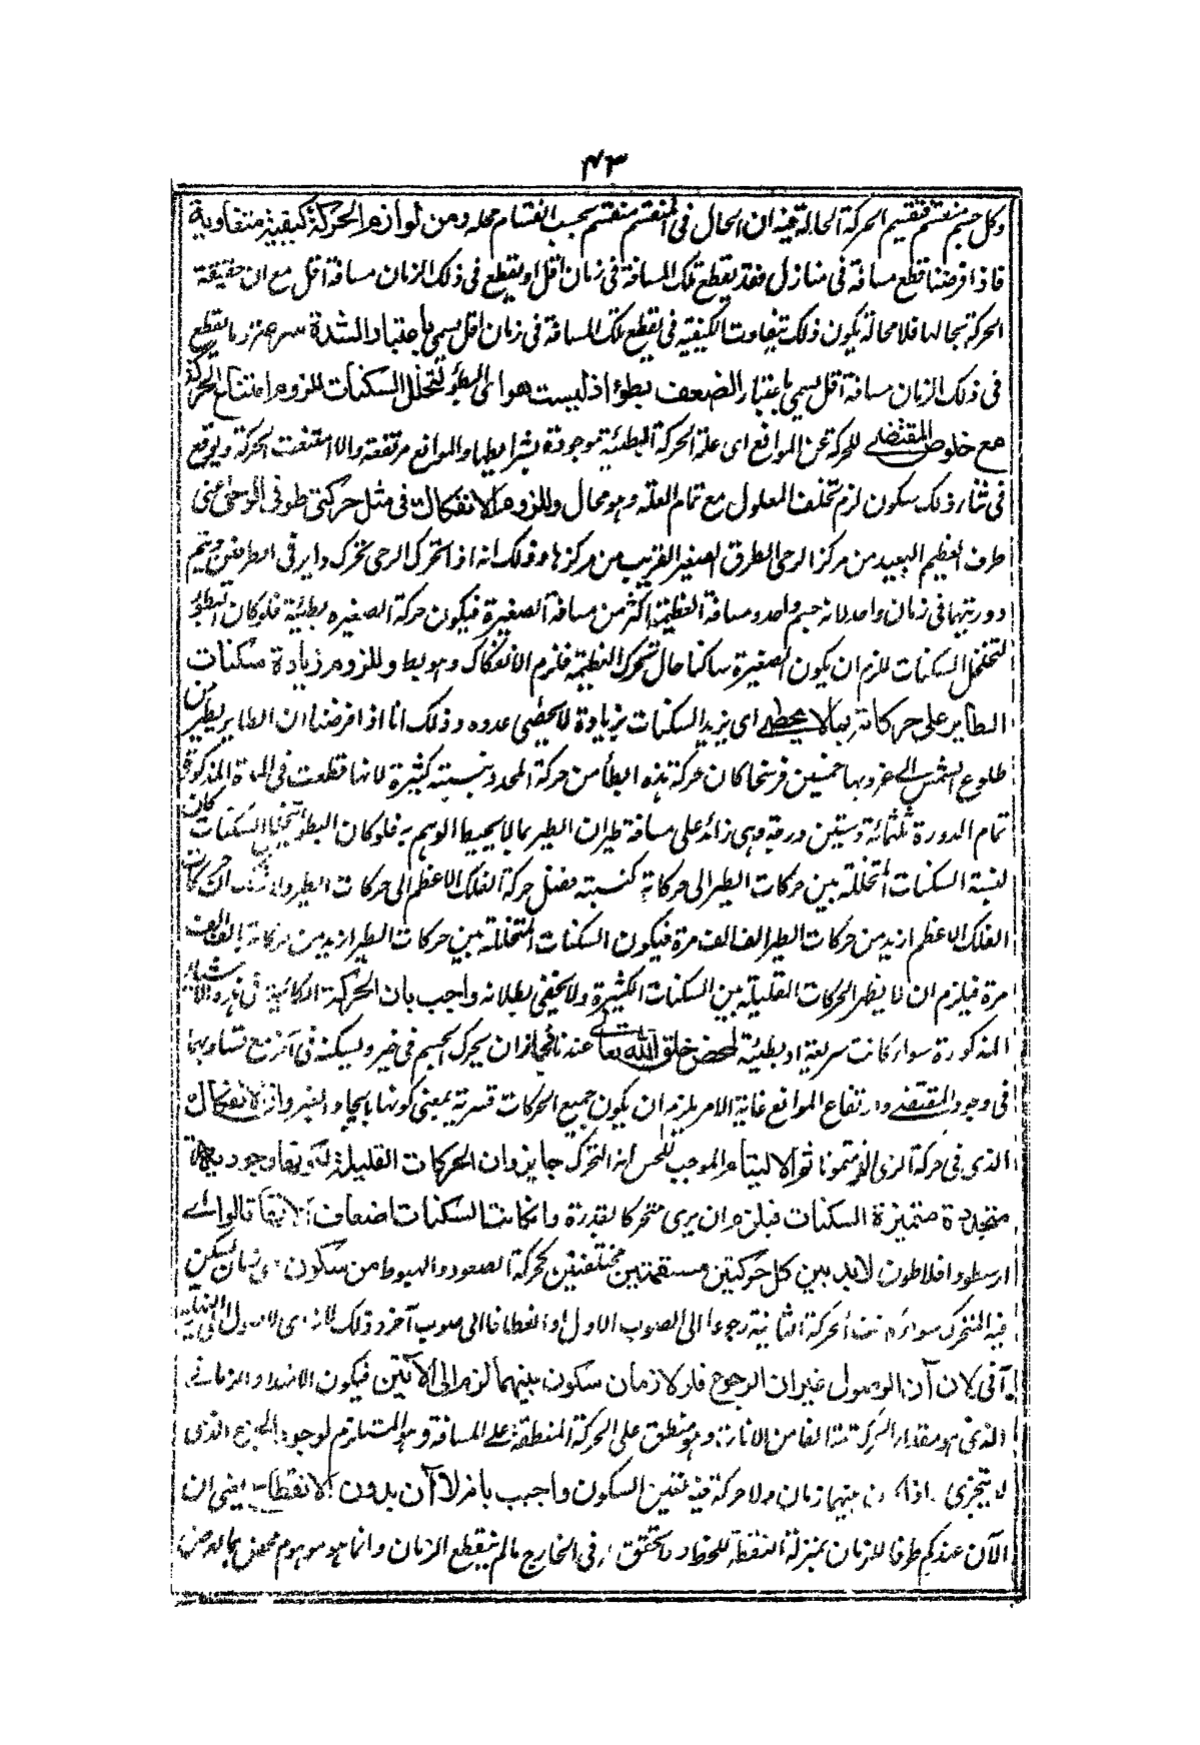 ٤٣
وكل جسم منقسم فتنقسم الحركة الحالة فيه ان الحال فى المنقسم منقسم بحسب انقسام محله ومن لوازم الحركة كيفية متفاوتة
فاذا فرضنا قطع مسافة فى منازل فقد يقطع تلك المسافة فى زمان اقل او يقطع فى ذلك الزمان مسافة اقل مع ان حقيقة
الحركة بحالها فلا محالة يكون ذلك بتفاوت الكيفية فى يقطع تلك المسافة فى زمان اقل يسمى باعتبار الشدة سرعة وما يقطع
فى ذلك الزمان مسافة اقل يسمى باعتبار الضعف بطؤا اذ ليست هو اى البطؤ لتخلل السكنات للزوم امتناع الحركة
مع خلوص المقتضى للحركة عن الموانع اى علة الحركة البطيئة موجودة بشرايطها والموانع مرتفعة والا امتنعت الحركة ويوقع
فى اثناء ذلك سكون لزم تخلف المعلول مع تمام العلة وهو محال وللزوم الانفكاك فى مثل حركتى طوفى الرحى اعنى
طرف العظيم البعيد من مركز الرحى الطرق الصغير القريب من مركزها وذلك انه اذا تحرك الرحى تحرك داير فى الطرفين ويتم
دورتيهما فى زمان واحد لانه جسم واحد ومسافة العظيمة اكثر من مسافة الصغيرة فيكون حركة الصغيره بطيئة فلو كان البطؤ
لتخلل السكنات للزم ان يكون الصغيرة ساكنا حال تحرك العظيمة فلزم الانفكاك وهو بط وللزوم زيادة سكنات
الطاير على حركاته بما لا يحصى اى يزيد السكنات بزيادة لا يحصى عدده وذلك انا اذا فرضنا ان الطاير يطير من
طلوع الشمس الى غروبها خمسين فرسخا كان حركة هذه ابطأ من حركة المحدد بنسبة كثيرة لانها قطعت فى المدة المذكورة
تمام الدورة ثلثمائة وستين درجة وهى زائد على مسافة طيران الطير بما لا يحيط الوهم به فلو كان البطؤ لتخلل السكنات كان
نسبة السكنات المتخللة بين حركات الطير الى حركاته كنسبة فضل حركة الفلك الاعظم الى حركات الطير ولا شك ان حركات
الفلك الاعظم ازيد من حركات الطير الف الف مرة فيكون السكنات المتخللة بين حركات الطير ازيد من حركاته الف الف
مرة فيلزم ان لا يظهر الحركات القليلة بين السكنات الكثيرة ولا يخفى بطلانه واجيب بان الحركة فى هذه الامثلة
المذكورة سواء كانت سريعة او بطيئة لمحض خلق الله تعالى عندنا فجاز ان يحرك الجسم فى حيز ويسكنه فى آخر مع تساويهما
فى وجود المقتضى وارتفاع الموانع غاية الامر يلزم ان يكون جميع الحركات قسرية بمعنى كونها بايجاد الغير وان الانفكاك
الذى فى حركة الرحى الالتيام الموجب للحس اثر التحرك جايز وان الحركات القليلة لكونها وجودية
متجددة متميزة السكنات فيلزم ان يرى متحركا لقدرة وان كانت السكنات اضعاف الانها قالوا اى
ارسطو وافلاطون لابد بين كل حركتين مستقيمتين مختلفتين كحركة الصعود والهبوط من سكون فى زمان يسكن
فيه المتحرك سواء كانت الحركة الثانية رجوعا الى الصوب الاول او انعطافا الى صوب آخر وذلك لان الوصول الى النهاية
آنى لان آن الوصول غير ان الرجوع فلو لا زمان سكون بينهما لزم الى الآنين فيكون الامتداد الزمانى
الذى هو مقدار الحركة متالفا من الآنات وهو منطبق على الحركة المنطبقة على المسافة وهو المستلزم لوجود الجزء الذى
لا يتجزى بينهما زمان ولا حركة فيه فتعين السكون واجيب بانه لا آن بدون الانقطاع يعنى ان
الآن عندكم طرف للزمان بمنزلة النقطة للخط ولا تحقق له فى الخارج مالم ينقطع الزمان وانما هو موهوم محض بالفرض